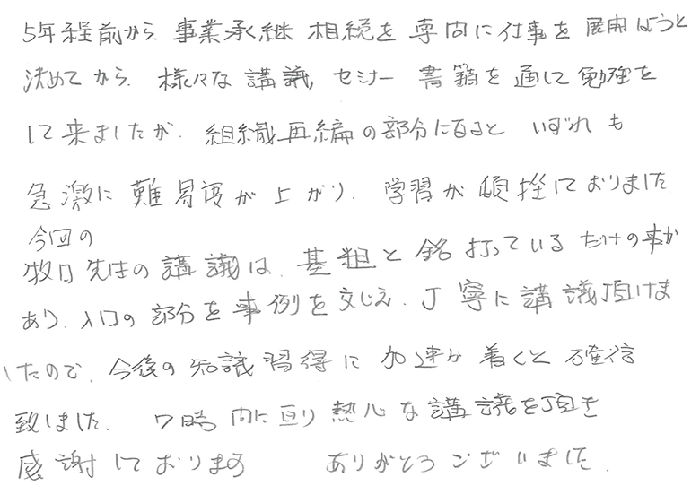 5年程前から 事業承継 相続を 専門に仕事を 展開しようと
決めてから、様々な講議、セミナー 書籍を通して勉強を
して来ましたが、組織再編の部分になると いずれも
急激に難易度が上がり、学習が頓挫しておりました
今回の
牧口先生の講議は、基礎と銘打っているだけの事が
あり、入口の部分を事例を交じえ、丁寧に講議頂けま
したので、今後の知識習得に加速が着くと確信
致しました。7時間に亘り熱心な講議を頂き
感謝しております ありがとうございました。